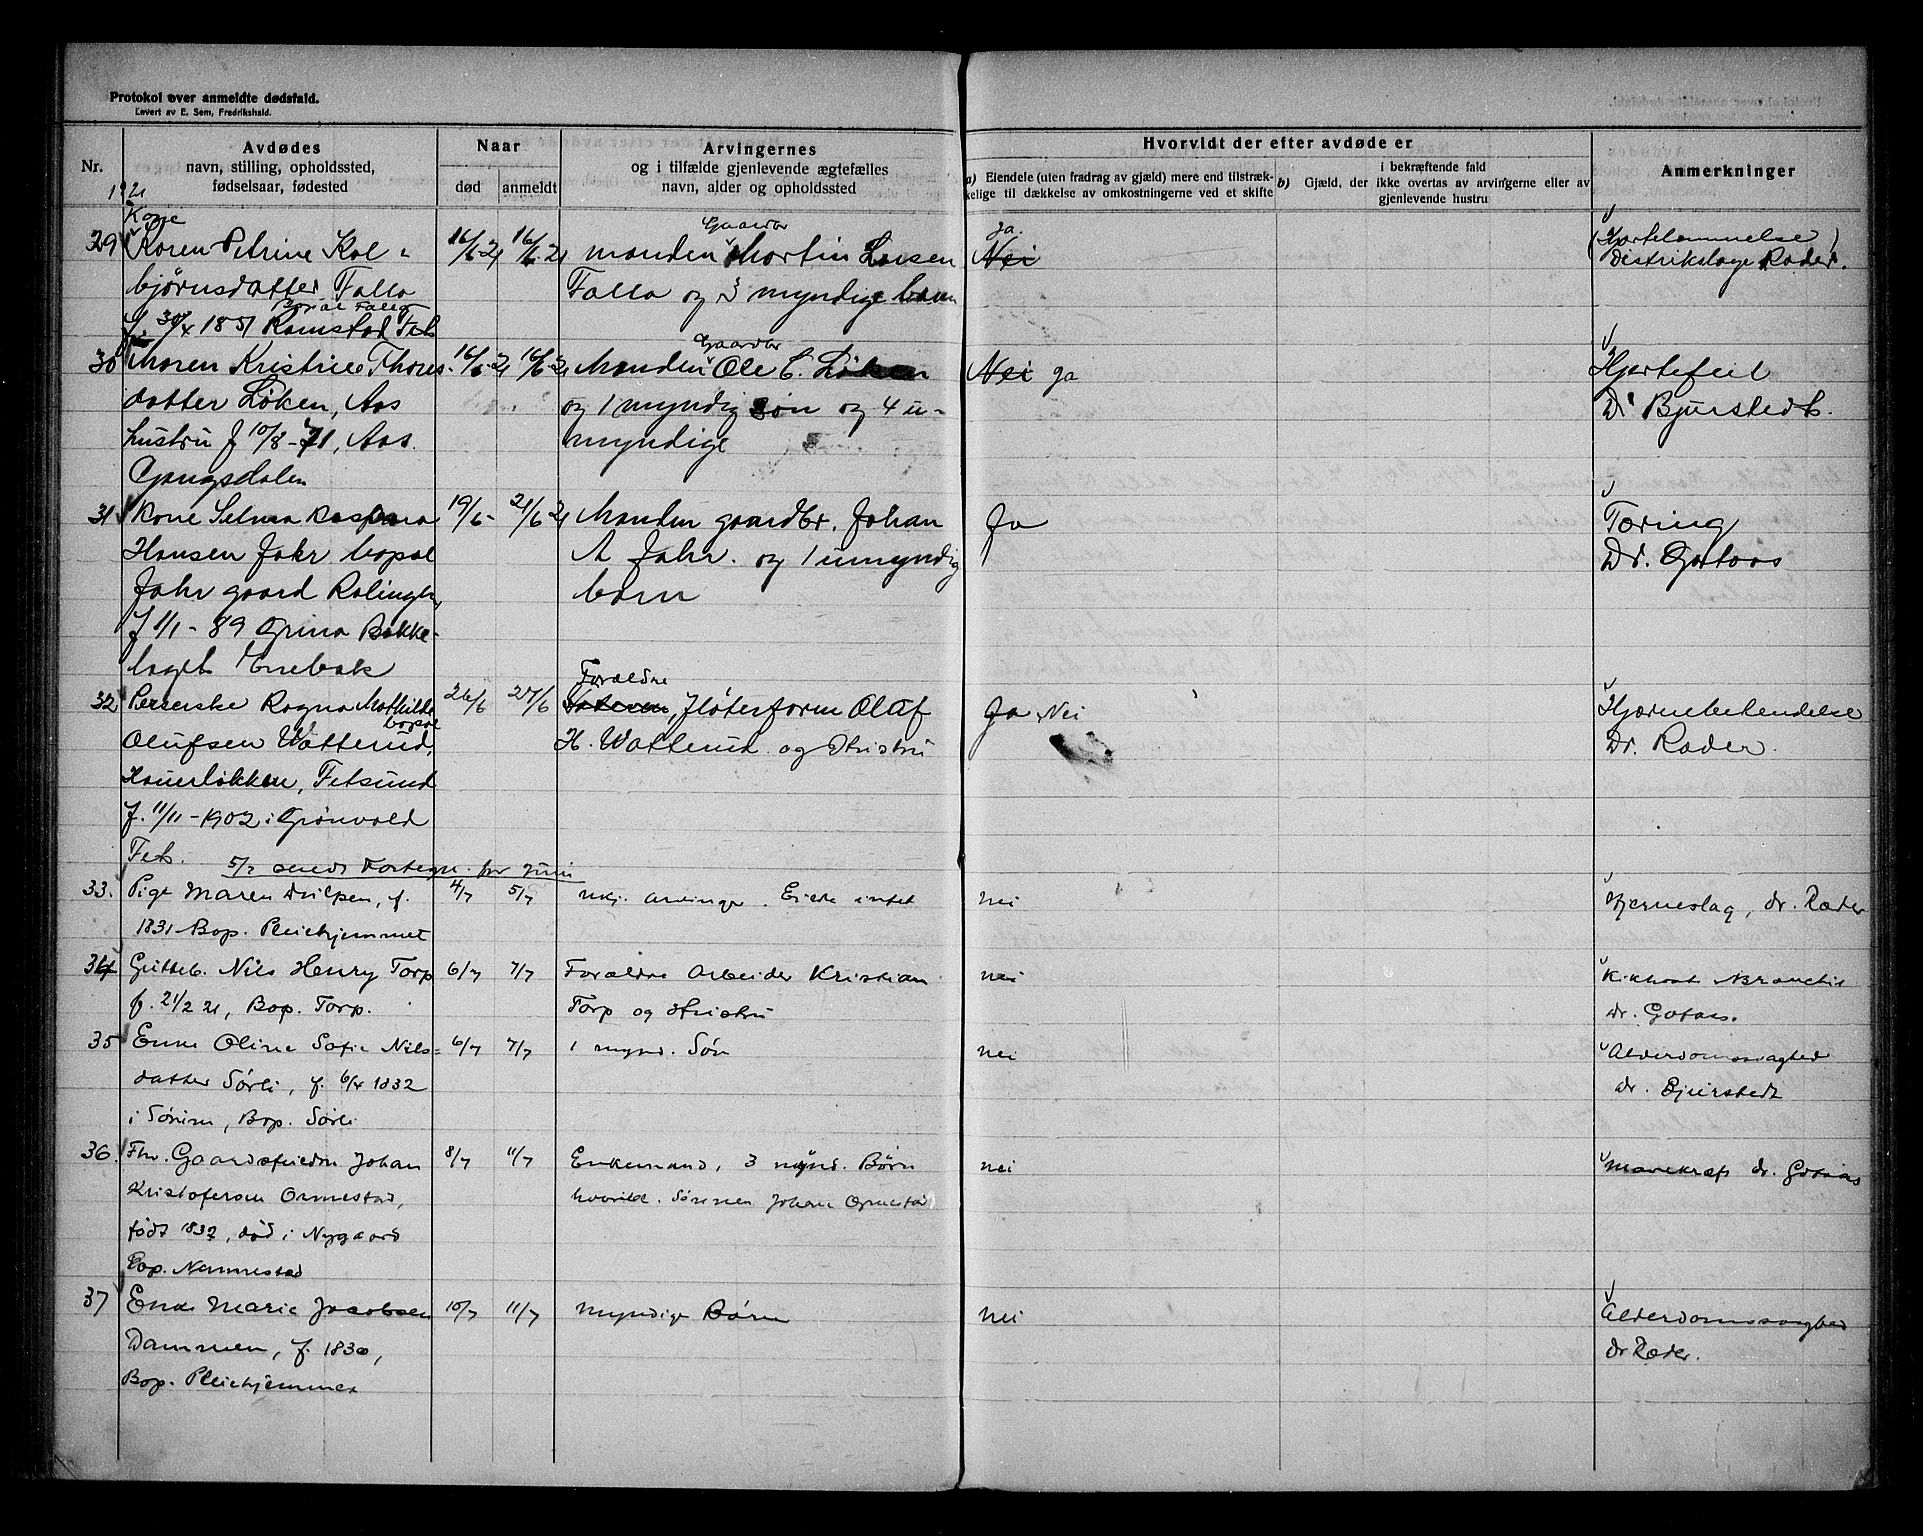 Protokol over anmeldte dødsfald.
Levert av E. Sem, Fredrikshald.
Nr.
Avdødes
navn, stilling, opholdssted,
fødselsaar, fødested
Naar
død
anmeldt
Arvingernes
og i tilfælde gjenlevende ægtefælles
navn, alder og opholdssted
Hvorvidt der efter avdøde er
a) Eiendele (uten fradrag av gjæld) mere end tilstræk-
kelige til dækkelse av omkostningerne ved et skifte
b) Gjæld, der
i bekræftende fald
ikke overtas av arvingerne eller av
gjenlevende hustru
Anmerkninger
1921
29
Kone
Karen Petrine Kol-
bjørnsdatter Falla
Bopæl Falla
f. 30/4 1851 Ramstad Fet
16/6-21
16/6-21
Gaardbr
manden Martin Larsen
Falla og 3 myndige barn
ja.
Nei
(Hjertelammelse)
Distrikslæge Ræder.
30
Maren Kristine Thores-
datter Løken, Aas
hustru f 10/8-71, Aas
Gangsdalen
16/6-21
16/6-21
Gaardbr
Manden Ole C. Løken
og 1 myndig søn og 4 u-
myndige
Nei ja
Hjertefeil
Dr Bjurstedt.
31
Kone Selma Kaspara
Hansen Jahr bopæl
Jahr gaard Rælingen,
f 1/1-89 Grina Bakke-
laget Enebak
19/6-
21/6 21
Manden gaardbr. Johan
A Jahr. og 1 umyndig
barn
Ja
Tæring
Dr. Gotaas
32
Berserske Ragna Mathilde
bopæl
Olufsen Watterud,
Hauerløkken, Fetsund
f. 11/11-1902 i Grønvold
Fet.
26/6
27/6
Forældre
Faderen, Fløterform Olaf
H. Watterud og Hustru
Ja Nei
Hjernebetendelse
Dr. Ræder.
5/7 sendt Fortegn. for Juni
33.
Pige Maren, f.
1831 Bop. Pleiehjemmet
4/7
5/7
ukj. Arvinger. Eiede intet
nei
Hjerneslag, dr. Ræder
34
Gutteb. Nils Henry Torp
f. 21/2 21, Bop. Torp.
6/7
7/7
Forældre Arbeider Kristian
Torp og Hustru
nei
Kikhoste Broncit
dr. Gotaas.
35
Enke Oline Sofie Nils-
datter Sørli, f. 6/4 1832
i Sørum, Bop. Sørli
6/7
7/7
1 mynd. Søn
nei
Alderdomssvaghed
dr. Bjurstedt
36.
Fhv. Gaardsfieder Johan
Kristofersen Ormestad,
født 1832, død i Nygaard
Bop. Nannestad
8/7
11/7
Enkemand, 3 mynd. Børn
hvoribl. Sønnen Johan Ormestad
nei
Mavekræft dr. Gotaas
37
Enke Marie Jacobsen
Dammen, f. 1830,
Bop. Pleiehjemmet
10/7
11/7
myndige Børn
nei
Alderdomssvaghed
dr Ræder.